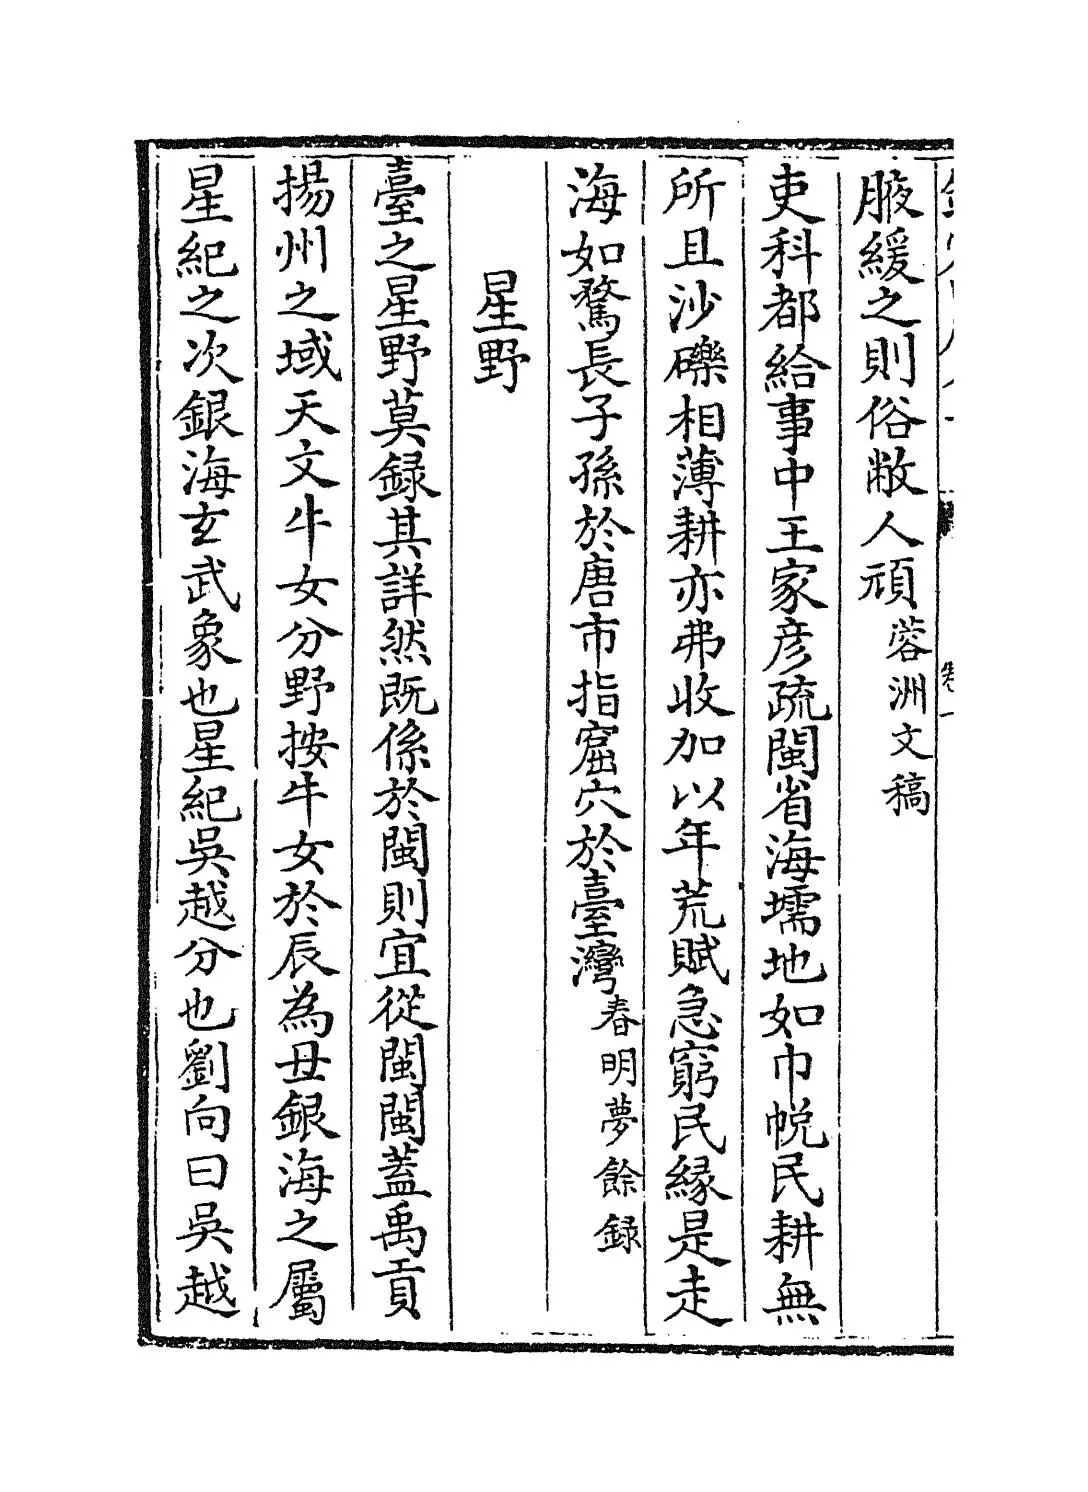 腋緩之則俗敝人頑蓉洲文稿
吏科都給事中王家彦疏閩省海壖地如巾帨民耕無
所且沙礫相薄耕亦弗收加以年荒賦急窮民縁是走
海如騖長子孫於唐市指窟穴於臺灣春明夢餘録
星野
臺之星野莫録其詳然既係於閩則宜從閩閩蓋禹貢
揚州之域天文牛女分野按牛女於辰為丑銀海之屬
星紀之次銀海玄武象也星紀吳越分也劉向曰吳越